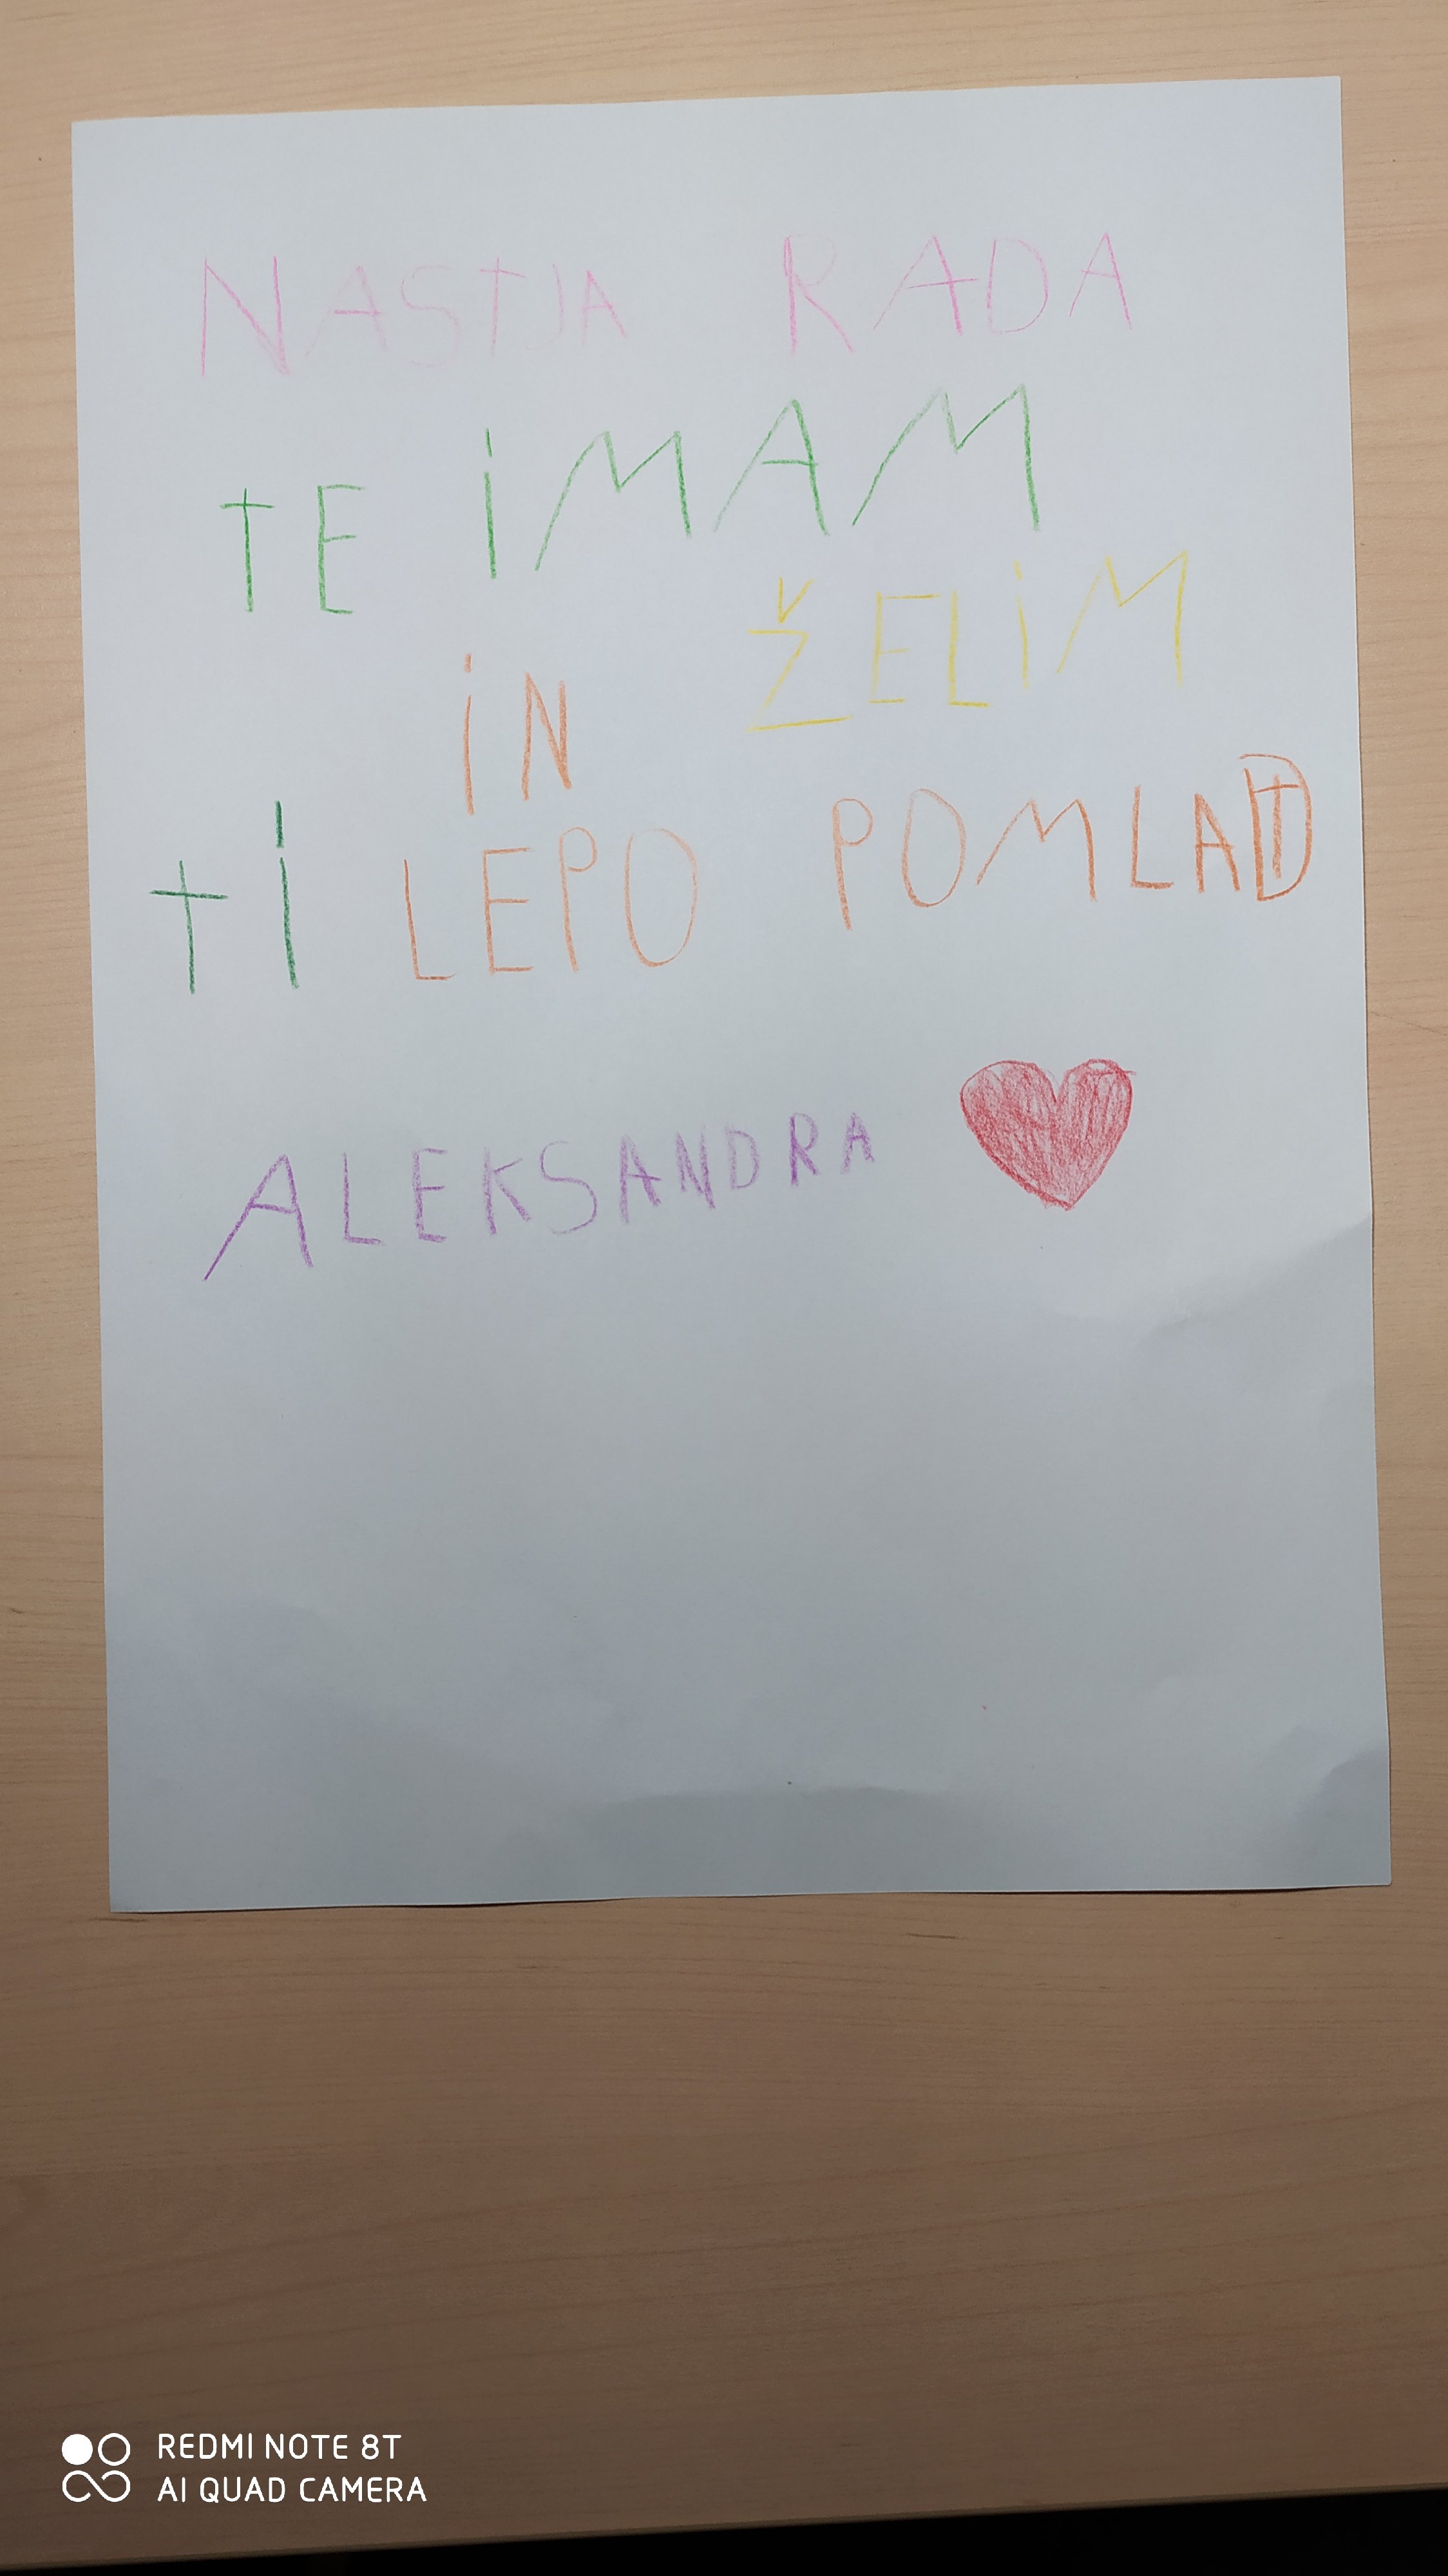 NASTJA RADA
TE IMAM
IN ŽELIM
TI LEPO POMLAD
ALEKSANDRA
REDMI NOTE 8T
AI QUAD CAMERA